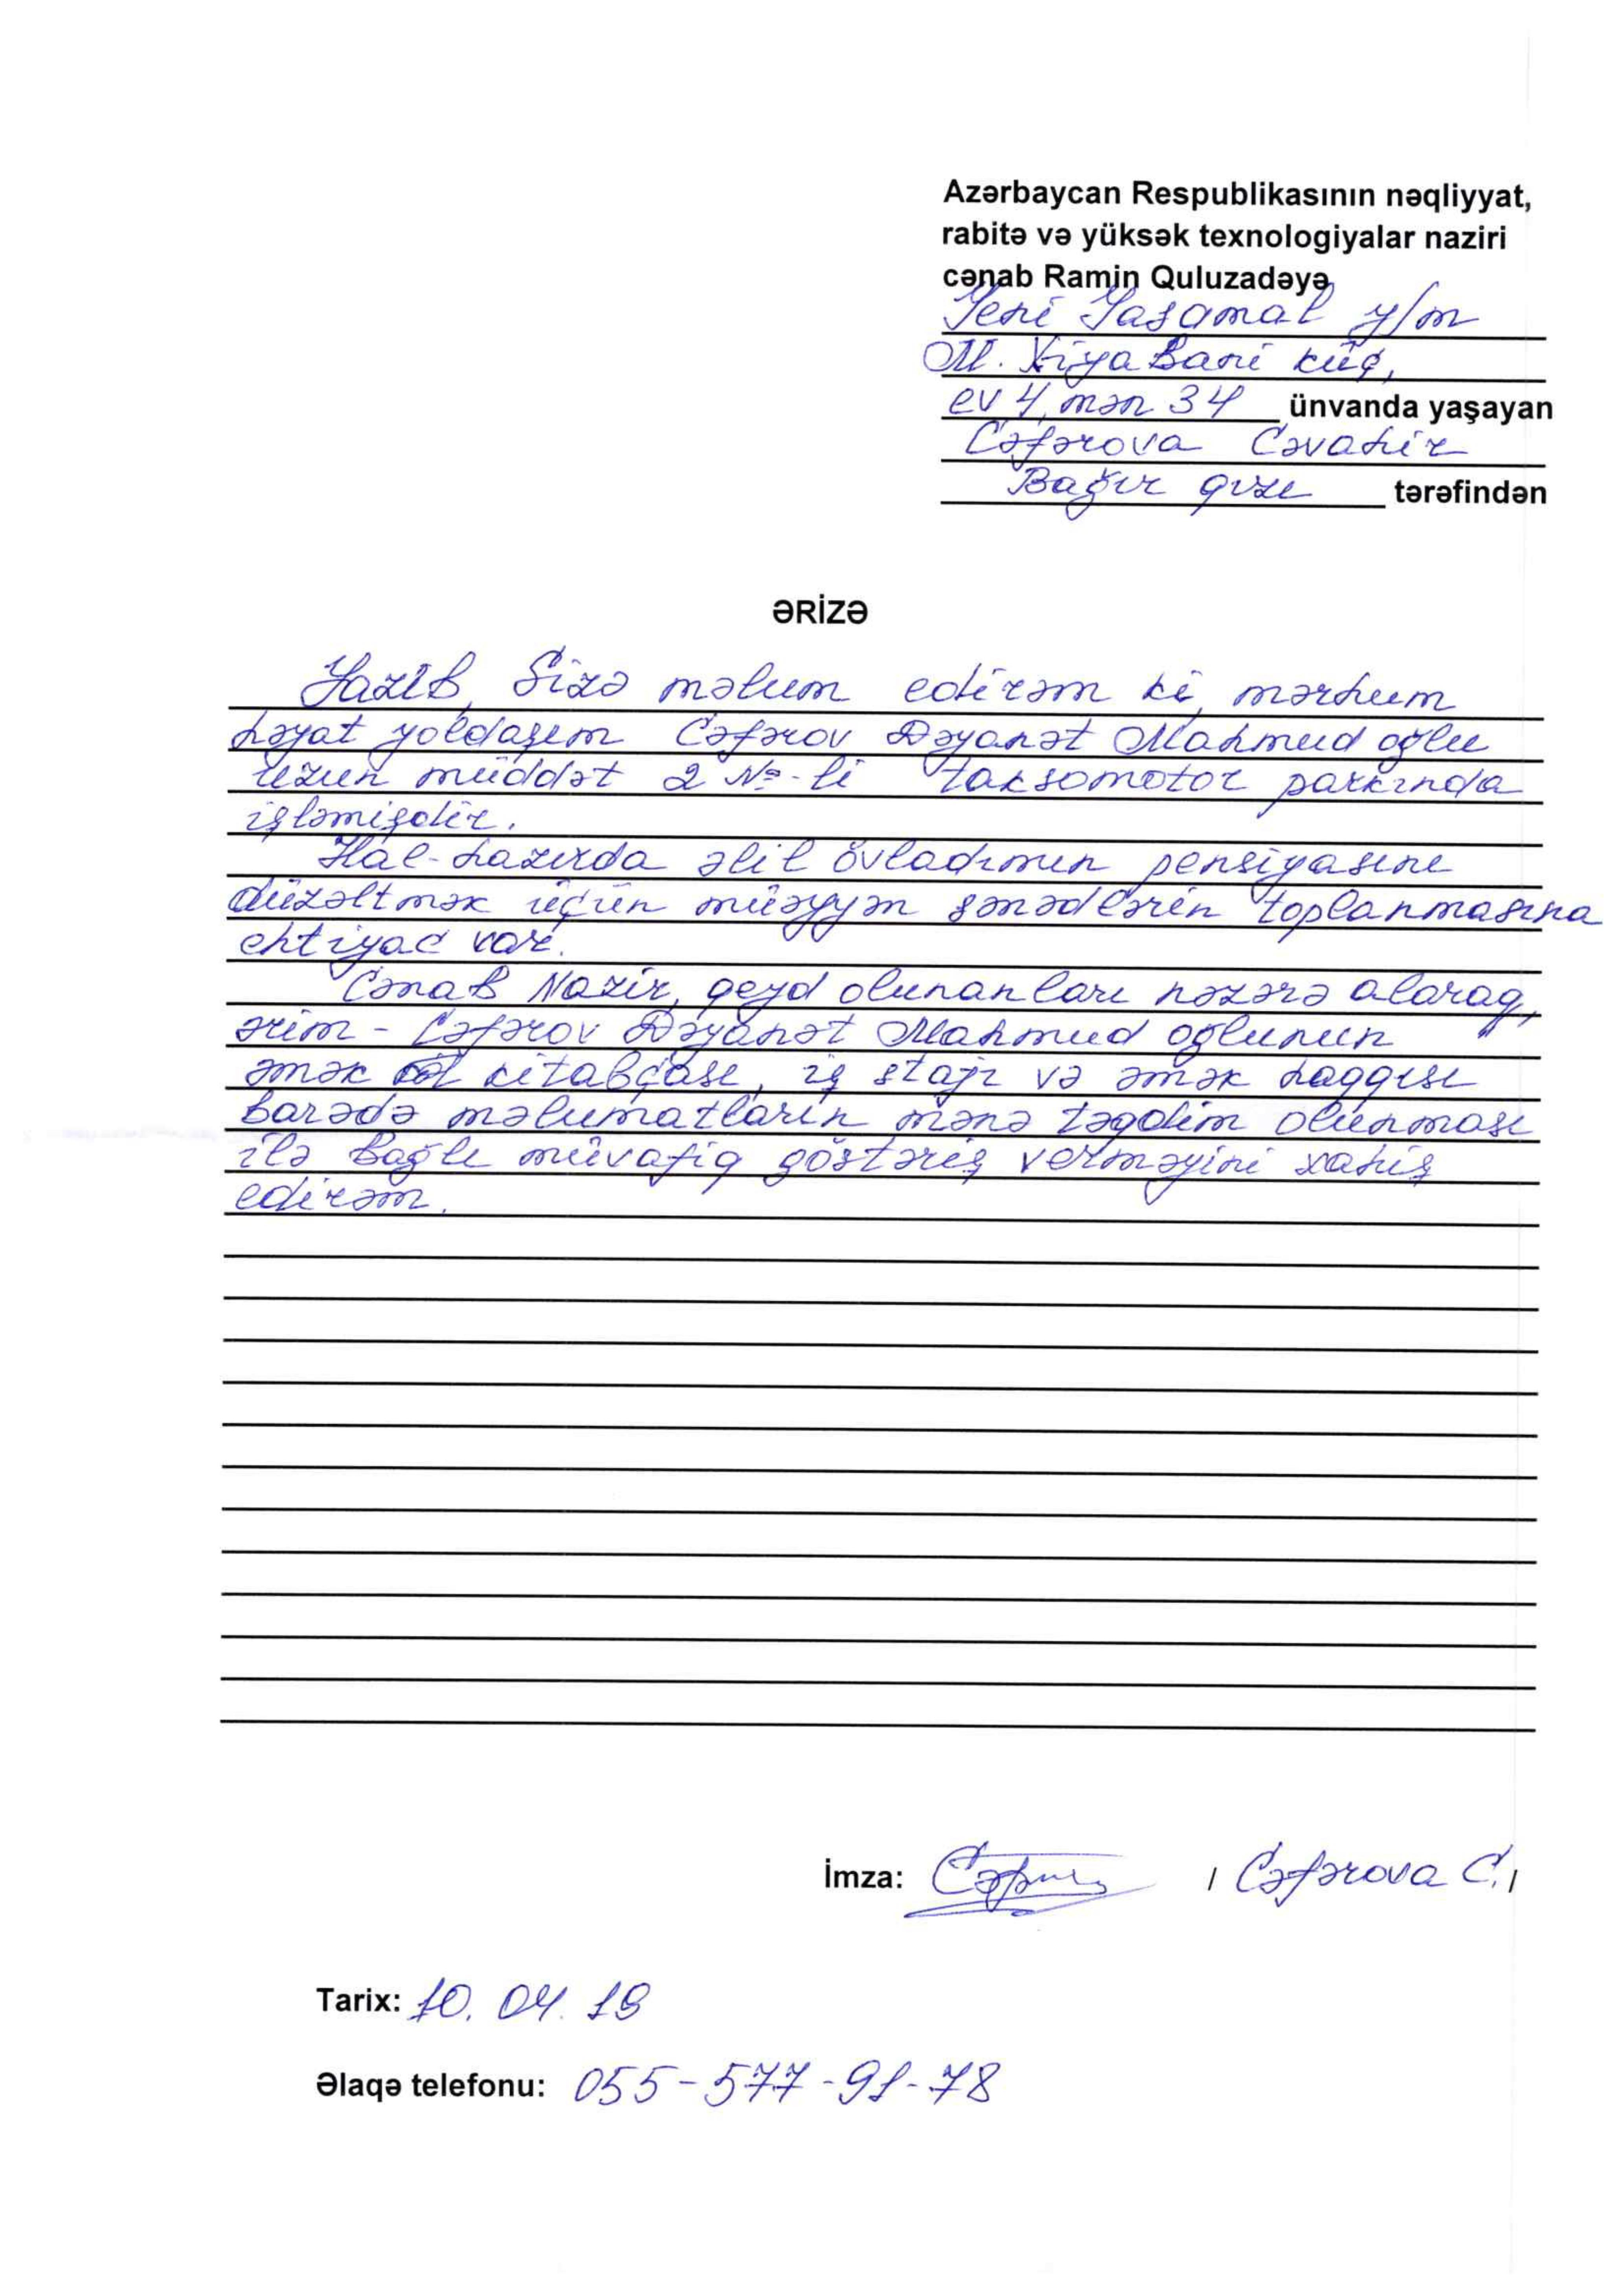 Azərbaycan Respublikasının nəqliyyat,
rabitə və yüksək texnologiyalar naziri
cənab Ramin Quluzadəyə
Yeni Yasamal y/m
M. Xiyabani küç,
ev 4, mən 34 ünvanda yaşayan
Cəfərova Cəvahir
Bağır qızı tərəfindən
ƏRİZƏ
Yazıb, Sizə məlum edirəm ki, mərhum
həyat yoldaşım Cəfərov Dəyanət Mahmud oğlu
uzun müddət 2 №-li taksomotor parkında
işləmişdir.
Hal-hazırda əlil övladımın pensiyasını
düzəltmək üçün müəyyən sənədlərin toplanmasına
ehtiyac var.
Cənab Nazir, qeyd olunanları nəzərə alaraq,
ərim - Cəfərov Dəyanət Mahmud oğlunun
əmək kitabçası, iş stajı və əmək haqqısı
barədə məlumatların mənə təqdim olunması
ilə bağlı müvafiq göstəriş verməyini xahiş
edirəm.
İmza: / Cəfərova C. /
Tarix: 10. 04. 19
Əlaqə telefonu: 055-577-91-78